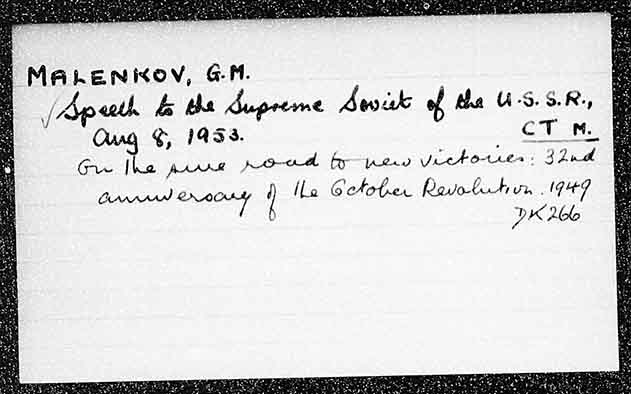 MALENKOV, G.M.
✓ Speech to the Supreme Soviet of the U.S.S.R.,
Aug 8, 1953.
CT M.
On the sure road to new victories: 32nd
anniversary of the October Revolution. 1949
DK266